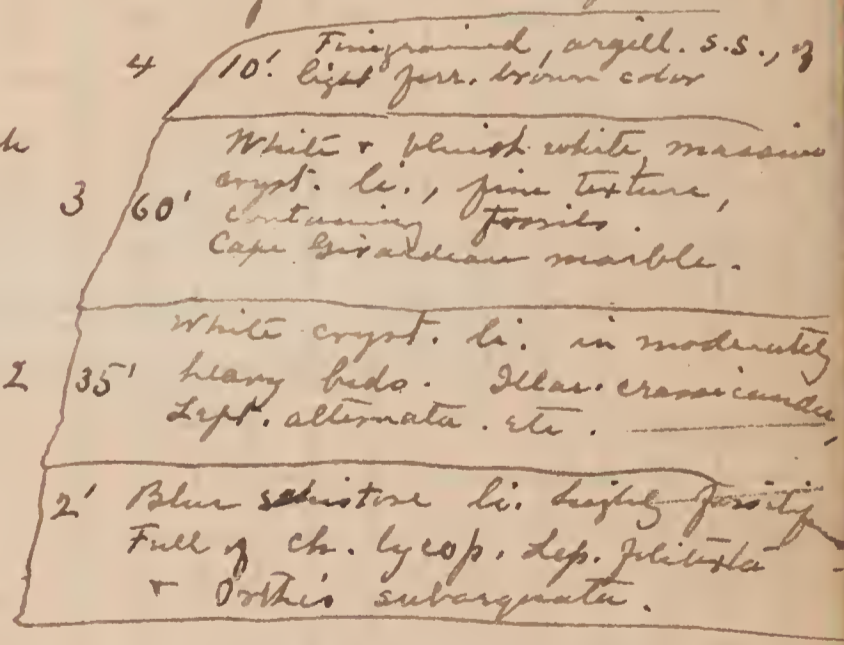 4 10'. Finegrained, argill. s.s., of
light ferr. brown color
3 60' White + bluish white, massive
cryst. li., fine texture,
containing fossils.
Cape Girardeau marble.
2 35' White cryst. li. in moderately
heavy beds. Illae. crassicauda,
Lept. alternata. etc.
2' Blue li. highly
Full of ch. lycop. Lep. filitexta
+ Orthis subaequata.